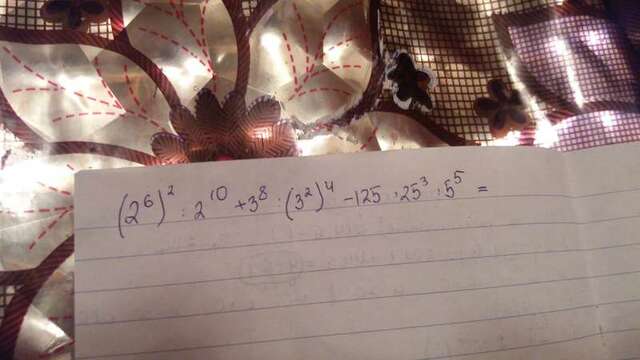 (2⁶)² : 2¹⁰ + 3⁸ : (3²)⁴ - 125 · 25³ : 5⁵ =